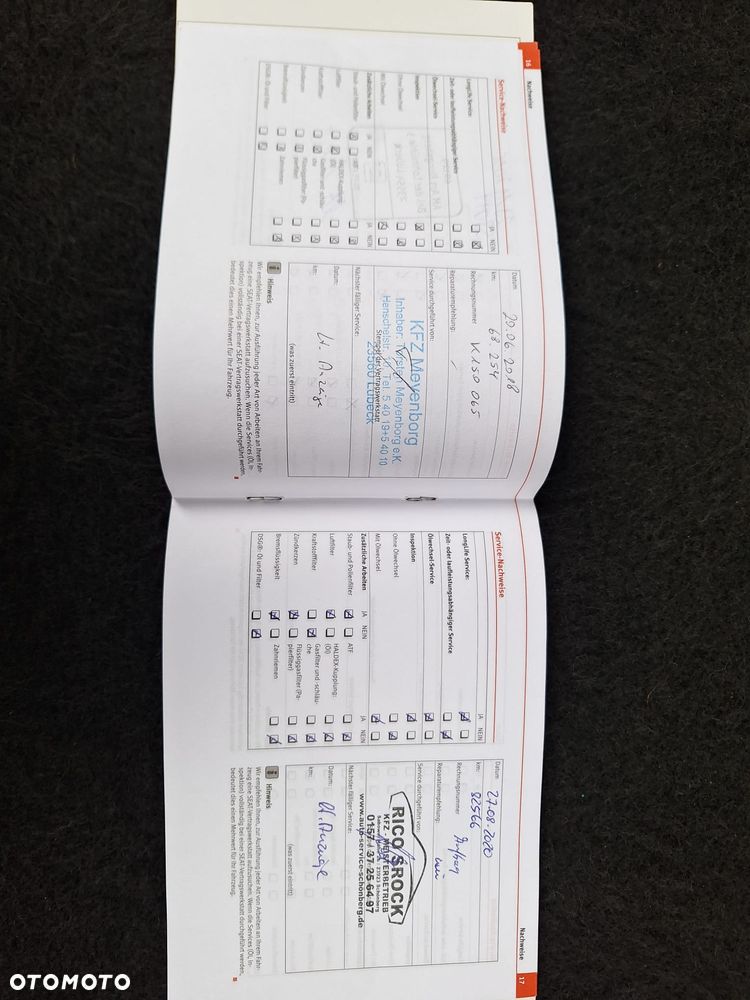 16 Nachweise
Service-Nachweise
JA NEIN
LongLife Service
Zeit- oder laufleistungsabhängiger Service
Ölwechsel-Service
Inspektion
Ohne Ölwechsel
Mit Ölwechsel
Zusätzliche Arbeiten JA NEIN JA NEIN
Staub- und Pollenfilter ATF
Luftfilter HALDEX-Kupplung (Öl)
Kraftstofffilter Gasfilter und -schläu-
che
Zündkerzen Flüssiggasfilter (Pa-
pierfilter)
Bremsflüssigkeit Zahnriemen
DSG®: Öl und Filter
Datum 29.06.2018
km: 68.254
Rechnungsnummer K150 065
Reparaturempfehlung:
Service durchgeführt von:
KFZ Meyenborg
Inhaber: Torsten Meyenborg e.K.
Henschelstr. Tel. 5 40 19+5 40 10
23560 Lübeck
Stempel der Vertragswerkstatt
Nächster fälliger Service:
Datum:
km: Lt. Anzeige
(was zuerst eintritt)
Hinweis
Wir empfehlen Ihnen, zur Ausführung jeder Art von Arbeiten an Ihrem Fahr-
zeug eine SEAT-Vertragswerkstatt aufzusuchen. Wenn die Services (Öl, In-
spektion) vollständig bei einer SEAT-Vertragswerkstatt durchgeführt werden,
bedeutet dies einen Mehrwert für Ihr Fahrzeug.
Nachweise 17
Service-Nachweise
JA NEIN
LongLife Service:
Zeit- oder laufleistungsabhängiger Service
Ölwechsel-Service
Inspektion
Ohne Ölwechsel
Mit Ölwechsel
Zusätzliche Arbeiten JA NEIN JA NEIN
Staub- und Pollenfilter ATF
Luftfilter HALDEX-Kupplung:
(Öl)
Kraftstofffilter Gasfilter und -schläu-
che
Zündkerzen Flüssiggasfilter (Pa-
pierfilter)
Bremsflüssigkeit Zahnriemen
DSG®: Öl und Filter
Datum 27.08.2020
km: 82566
Rechnungsnummer
Reparaturempfehlung:
Service durchgeführt von:
RICO SROCK
KFZ - MEISTERBETRIEB
23923 Schönberg
0157 / 37 25 64 97
www.auto-service-schönberg.de
Nächster fälliger Service:
Datum: lt. Anzeige
km:
(was zuerst eintritt)
Hinweis
Wir empfehlen Ihnen, zur Ausführung jeder Art von Arbeiten an Ihrem Fahr-
zeug eine SEAT-Vertragswerkstatt aufzusuchen. Wenn die Services (Öl, In-
spektion) vollständig bei einer SEAT-Vertragswerkstatt durchgeführt werden,
bedeutet dies einen Mehrwert für Ihr Fahrzeug.
OTOMOTO